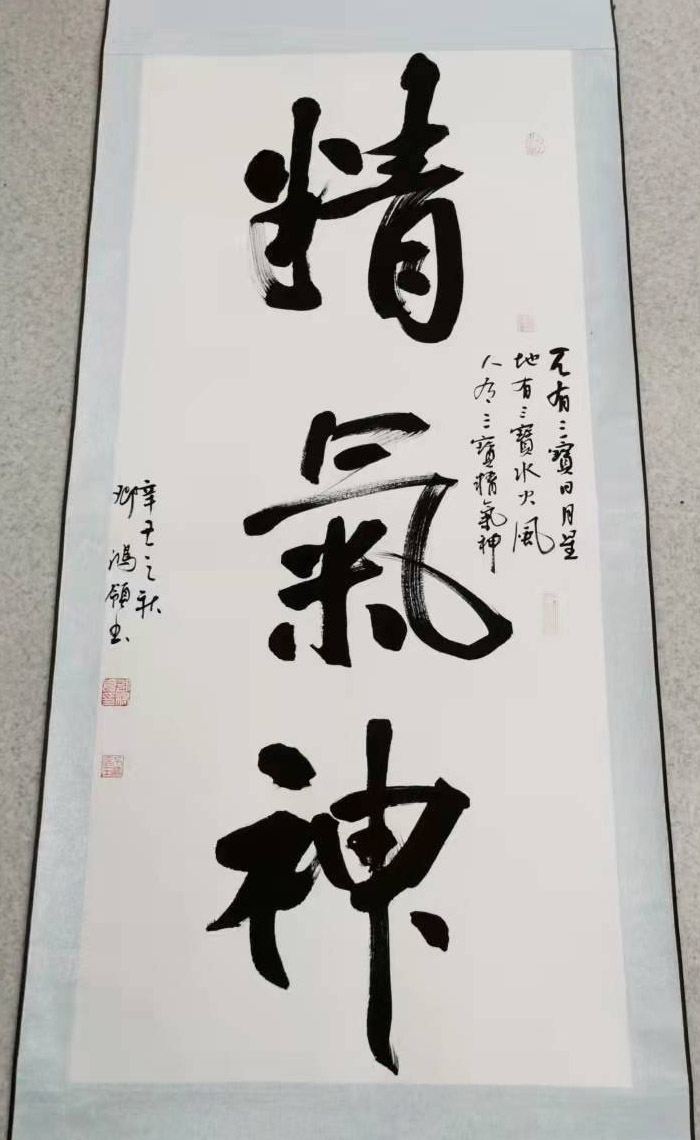 精氣神
天有三寶日月星
地有三寶水火風
人有三寶精氣神
辛丑之秋
鴻領書